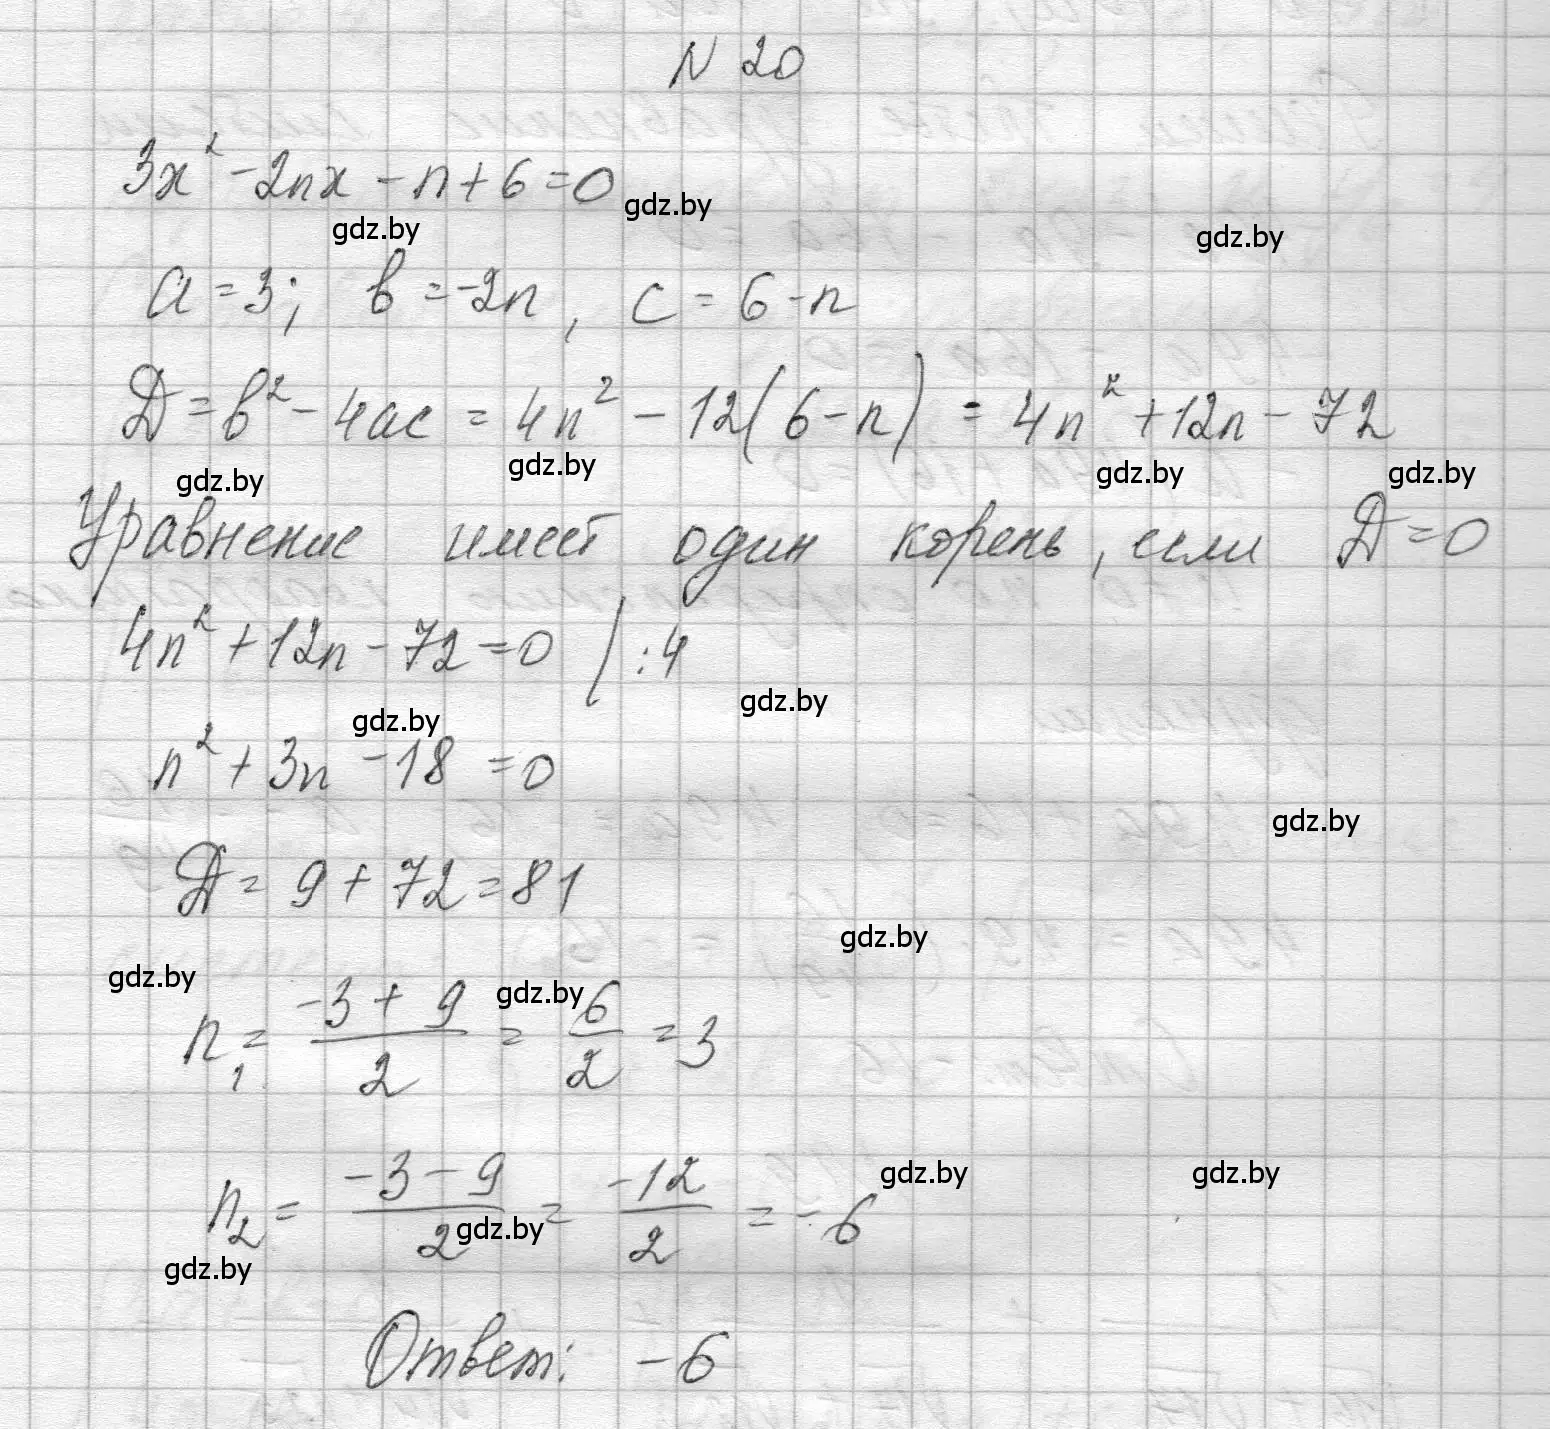 N 20
3x² - 2nx - n + 6 = 0
gdz.by gdz.by gdz.by
a = 3; b = -2n, c = 6 - n
D = b² - 4ac = 4n² - 12(6 - n) = 4n² + 12n - 72
gdz.by gdz.by gdz.by gdz.by
Уравнение имеет один корень, если D = 0
4n² + 12n - 72 = 0 | :4
gdz.by gdz.by
n² + 3n - 18 = 0
gdz.by
D = 9 + 72 = 81
gdz.by
gdz.by gdz.by
n₁ = (-3 + 9)/2 = 6/2 = 3
gdz.by gdz.by
n₂ = (-3 - 9)/2 = -12/2 = -6
gdz.by
gdz.by
Ответ: -6